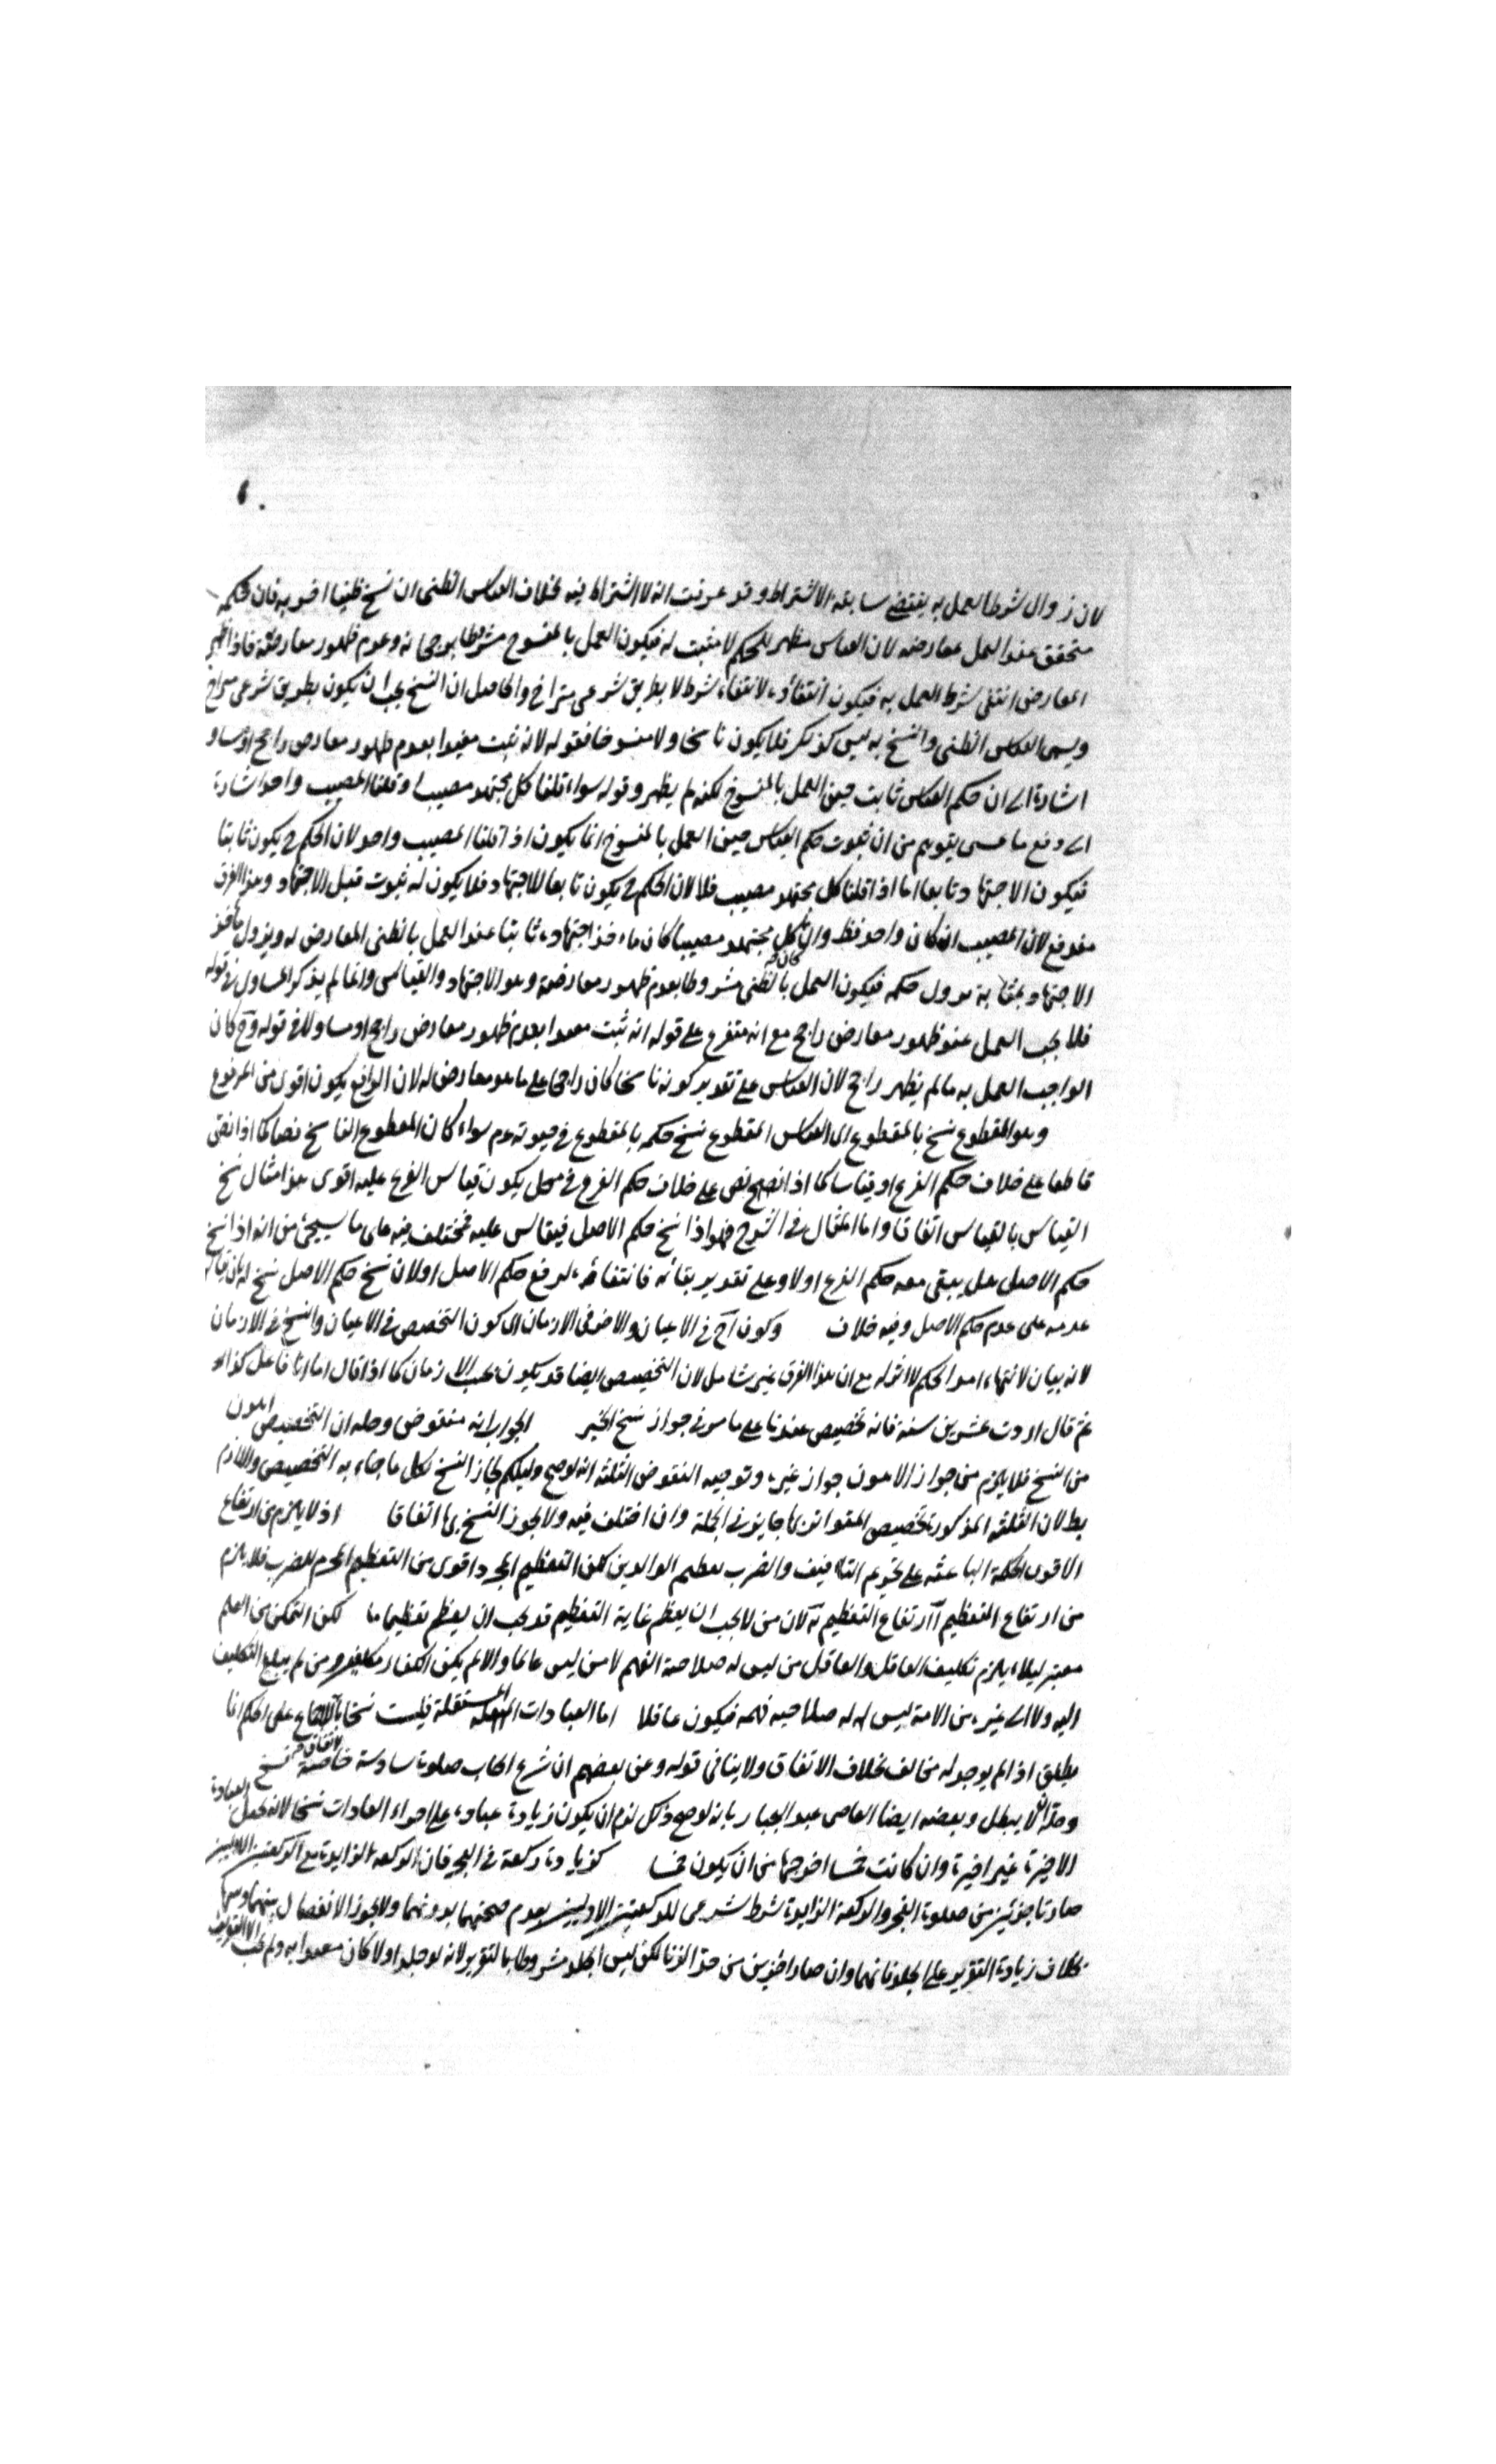 لان زوال شرط العمل به يقتضي سابقه الاشتراط وقد عرفت انه لا اشتراط فيه بخلاف القياس الظني ان نسخ ظنيا اخر به فان حكمه
متحقق عند العمل بمعارضه لان القياس مظهر للحكم لا مثبت له فيكون العمل بالمنسوخ مشروطا برجحانه وعدم ظهور معارضه فاذا ظهر
المعارض انتفى شرط العمل به فيكون انتفاؤه لانتفاء شرطه لا بطريق شرعي متراخ والحاصل ان النسخ يجب ان يكون بطريق شرعي متراخ
وليس القياس الظني والنسخ به ليس كذلك فلا يكون ناسخا ولا منسوخا فقوله لانه ثبت مقيدا بعدم ظهور معارض راجح او مساو
اشارة الى ان حكم القياس ثابت حين العمل بالمنسوخ لكنه لم يظهر وقوله سواء قلنا كل مجتهد مصيب او قلنا المصيب واحد اشارة
الى دفع ما عسى يتوهم من ان ثبوت حكم القياس حين العمل بالمنسوخ انما يكون اذا قلنا المصيب واحد لان الحكم ح يكون ثابتا
فيكون الاجتهاد تابعا اما اذا قلنا كل مجتهد مصيب فلا لان الحكم ح يكون تابعا للاجتهاد فلا يكون له ثبوت قبل الاجتهاد وهذا الفرق
مندفع لان المصيب ان كان واحد فظ وان كان كل مجتهد مصيبا كان ماخذ اجتهاده ثابتا عند العمل بالظني المعارض له ويزول ماخذ
الاجتهاد حكمه فيكون العمل بالظني مشروطا بعدم ظهور معارضه وهو الاجتهاد والقياس وانما لم يذكر المساوي في قوله
فلا يجب العمل عند ظهور معارض راجح مع انه متفرع على قوله انه ثبت مقيدا بعدم ظهور معارض راجح او مساو ولا في قوله وح كان
الواجب العمل به ما لم يظهر راجح لان القياس على تقدير كونه ناسخا كان راجحا على ما هو معارض له لان الرافع يكون اقوى من المرفوع
وهو المقطوع نسخ بالمقطوع اي القياس المقطوع نسخ حكمه بالمقطوع في حيوته عم سواء كان المقطوع الناسخ نصا كما اذا نص
قاطعا على خلاف حكم الفرع او قياسا كما اذا نص على خلاف حكم الفرع في محل يكون قياس الفرع عليه اقوى هذا مثال نسخ
القياس بالقياس اتفاقا واما المثال في الشرح فهو اذا نسخ حكم الاصل فيقاس عليه فمختلف فيه على ما سيجئ من انه اذا نسخ
حكم الاصل هل يبقى معه حكم الفرع اولا وعلى تقدير بقائه فانتفاؤه لرفع حكم الاصل او لان نسخ حكم الاصل نسخ له بان يقاس
عدمه على عدم حكم الاصل وفيه خلاف وكون آخ في الاعيان والاخر في الازمان اي كون التخصيص في الاعيان والنسخ في الازمان
لانه بيان لانتهاء امد الحكم لا اثر له مع ان هذا الفرق غير شامل لان التخصيص ايضا قد يكون بحسب الازمان كما اذا قال اما انا فاعل كذا ابدا
ثم قال اردت عشرين سنة فانه تخصيص عندنا على ما مر في جواز نسخ الخبر الجواب انه منقوض وحله ان التخصيص اهون
من النسخ فلا يلزم من جواز الاهون جواز غيره وتوجيه النقوض الثلثة انه لو صح دليلكم لجاز النسخ بكل ما جاء به التخصيص واللازم
بطلان الثلثة المذكورة تخصيص المتواتر بها جايز في الجملة وان اختلف فيه ولا يجوز النسخ بها اتفاقا اذ لا يلزم من ارتفاع
الاقوى الحكمة الباعثة على تحريم التافيف والضرب تعظيم الوالدين لكن التعظيم المحرم اقوى من التعظيم المحرم للضرب فلا يلزم
من ارتفاع التعظيم ارتفاع التعظيم لان من لا يجب ان يعظم غاية التعظيم قد يجب ان يعظم تعظيما ما لكن التمكن من العلم
معتبر ليلا يلزم تكليف الغافل والغافل من ليس له صلاحية الفهم لا من ليس عالما والا لم يكن الكفار مكلفين ومن لم يبلغ التكليف
اليه ولا الى غيره من الامة ليس له صلاحية فهمه فيكون غافلا اما العبادات المستقلة فليست نسخا بالاجماع على الحكم انما
يطلق اذا لم يوجد له مخالف بخلاف الاتفاق ولا ينافي قوله وعن بعضهم ان شرع ايجاب صلوة سادسة نسخ
لا يبطل ايضا القاضي عبد الجبار بانه لو صح ذلك لزم ان يكون زيادة عبادة على اجزاء العبادات نسخا لانه يجعل العبادة
الاخيرة غير اخيرة وان كانت خمسا اخرجها من ان يكون خمسا كزيادة ركعة في الفجر فان الركعة الزايدة مع الركعتين الاوليين
صارتا جزئين من صلوة الفجر والركعة الزايدة شرط شرعي للركعتين الاوليين بعدم صحتهما بدونهما ولا يجوز الانفصال بينهما
بخلاف زيادة التغريب على الجلد فانهما وان صارا جزئين من حد الزنا لكن ليس الجلد مشروطا بالتغريب لانه لو جلد اولا كان معتدا به ولم يجب الا التغريب